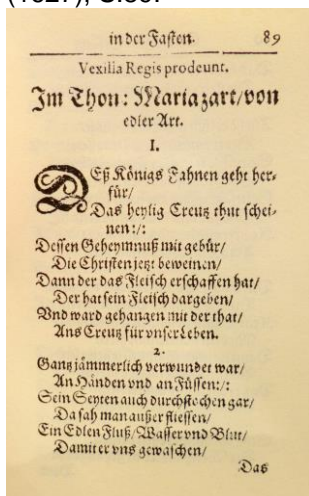 (1627), S.89.
in der Fasten. 89
Vexilia Regis prodeunt.
Im Thon: Maria zart/von
edler Art.
I.
DEß Königs Fahnen geht her-
für/
Das heylig Creutz thut schei-
nen:/:
Dessen Geheymnuß mit gebür/
Die Christen jetzt beweinen/
Dann der das Fleisch erschaffen hat/
Der hat sein Fleisch dargeben/
Vnd ward gehangen mit der that/
Ans Creutz für vnser Leben.
2.
Gantz jämmerlich verwundet war/
An Händen vnd an Füssen:/:
Sein Seyten auch durchstochen gar/
Da sah man außer fliessen/
Ein Edlen Fluß/Wasser vnd Blut/
Damit er vns gewaschen/
Das